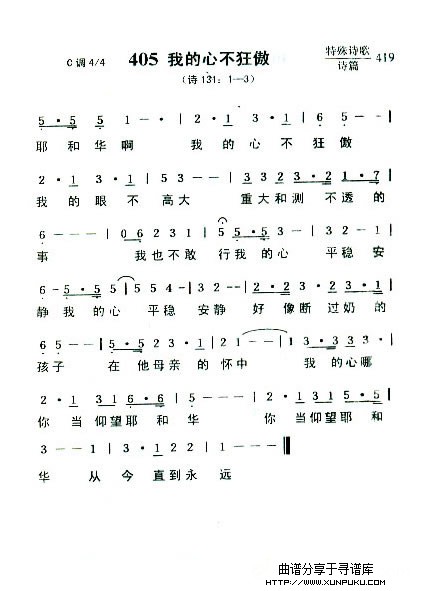 C调4/4
405 我的心不狂傲
特殊诗歌
诗篇
419
(诗131：1—3)
5·5 5·5 | 1 - - · | 2·1 3·1 | 6 5 - - |
耶和华啊 我的心不狂傲
2·1 3·1 | 5 3 - - | 3 3 2 3·2 1·7 |
我的眼不高大 重大和测不透的
6 - - - | 0 6 2 3 1 | 5 5·5 5 3 | 3 2 - 2·3 |
事 我也不敢 行我的心 平稳安
6 - 5·5 5 | 1 5 4 - 3 4 | 3 2 - - | 2·3 2·1 |
静我的心 平稳安静 好像断过奶的
6 5 - - | 5·5 2·3 2·1 | 2 1 - - - | 1 3·3 3 3· |
孩子 在他母亲的怀中 我的心哪
2·1 3 1 6·6 | 5 5 - - | 2·1 3 1 2·3 |
你当仰望耶和华 你当仰望耶和
3 - - - | 1 3·1 2 2 | 1 - - - ‖
华 从今直到永远
曲谱分享于寻谱库
HTTP://WWW.XUNPUKU.COM